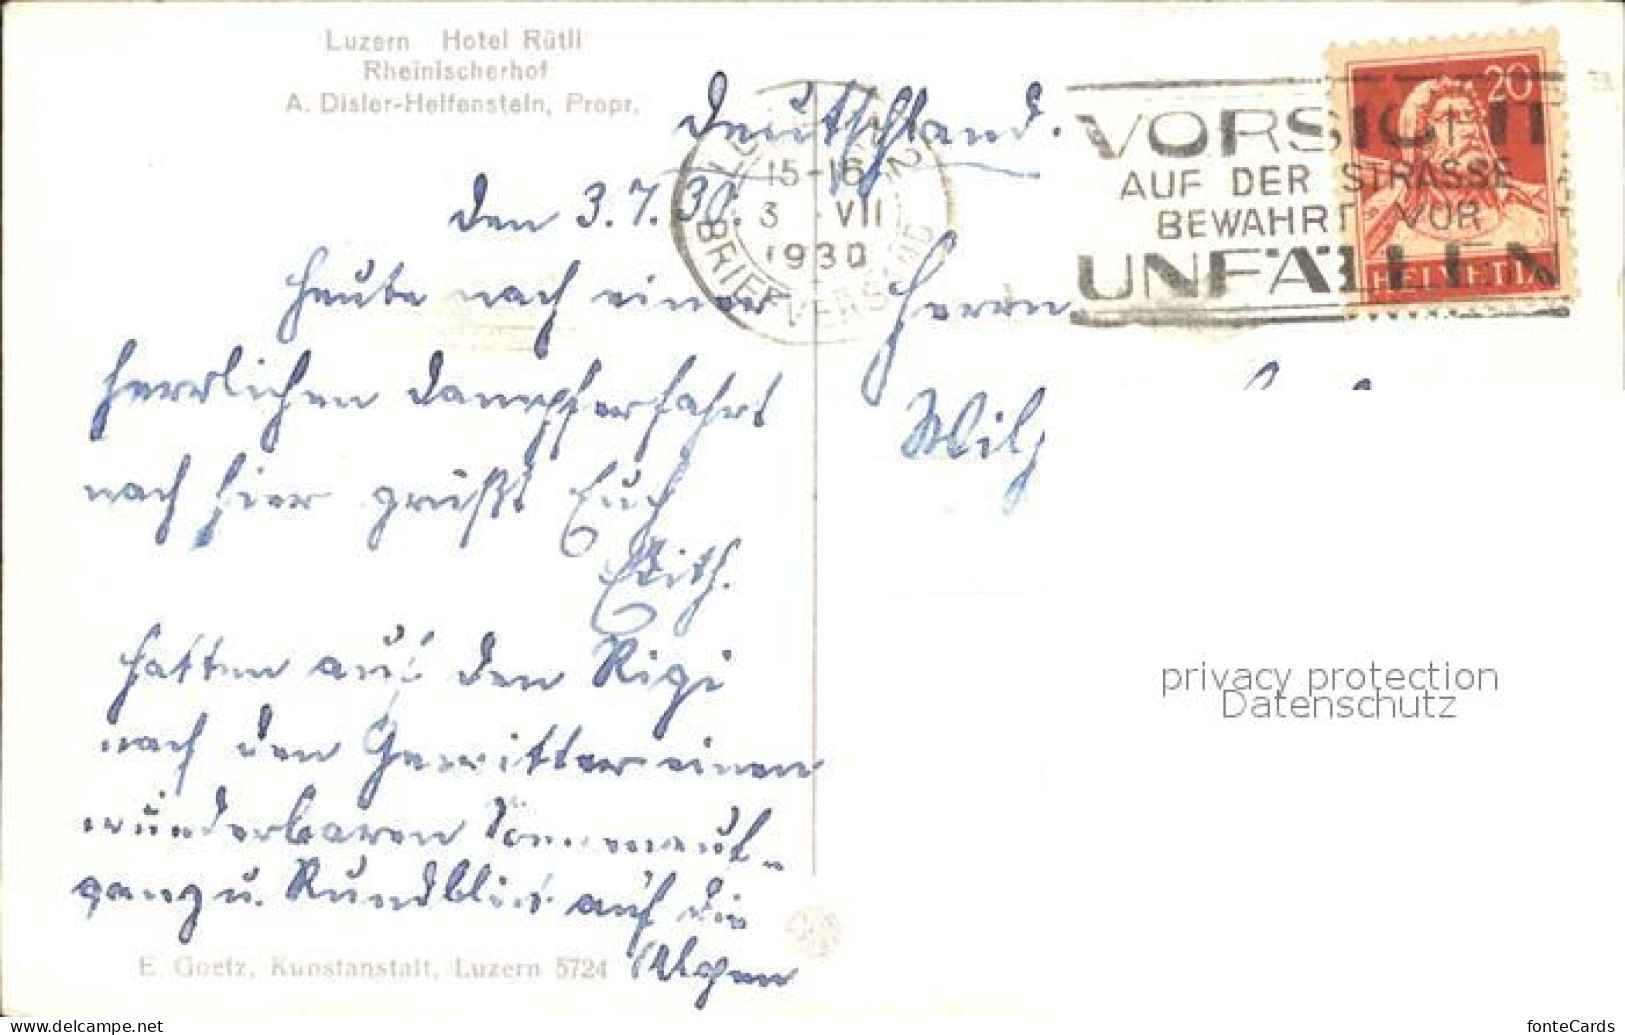 Luzern Hotel Rütli
Rheinischerhof
A. Disler-Helfenstein, Propr.
Deutschland.
den 3.7.30.
Heute nach einer
herrlichen Dampferfahrt
nach hier grüßt Euch
Edith.
Hatten auf den Rigi
nach den Gewitter einen
wunderbaren Sonnenauf-
gang u. Rundblick auf die
Alpen
E. Goetz, Kunstanstalt, Luzern 5724
15-16
3 VII
1930
BRIEFVERSAND
VORSICHT
AUF DER STRASSE
BEWAHRT VOR
UNFÄLLEN
20
HELVETIA
Herrn
privacy protection
Datenschutz
www.delcampe.net
fonteCards